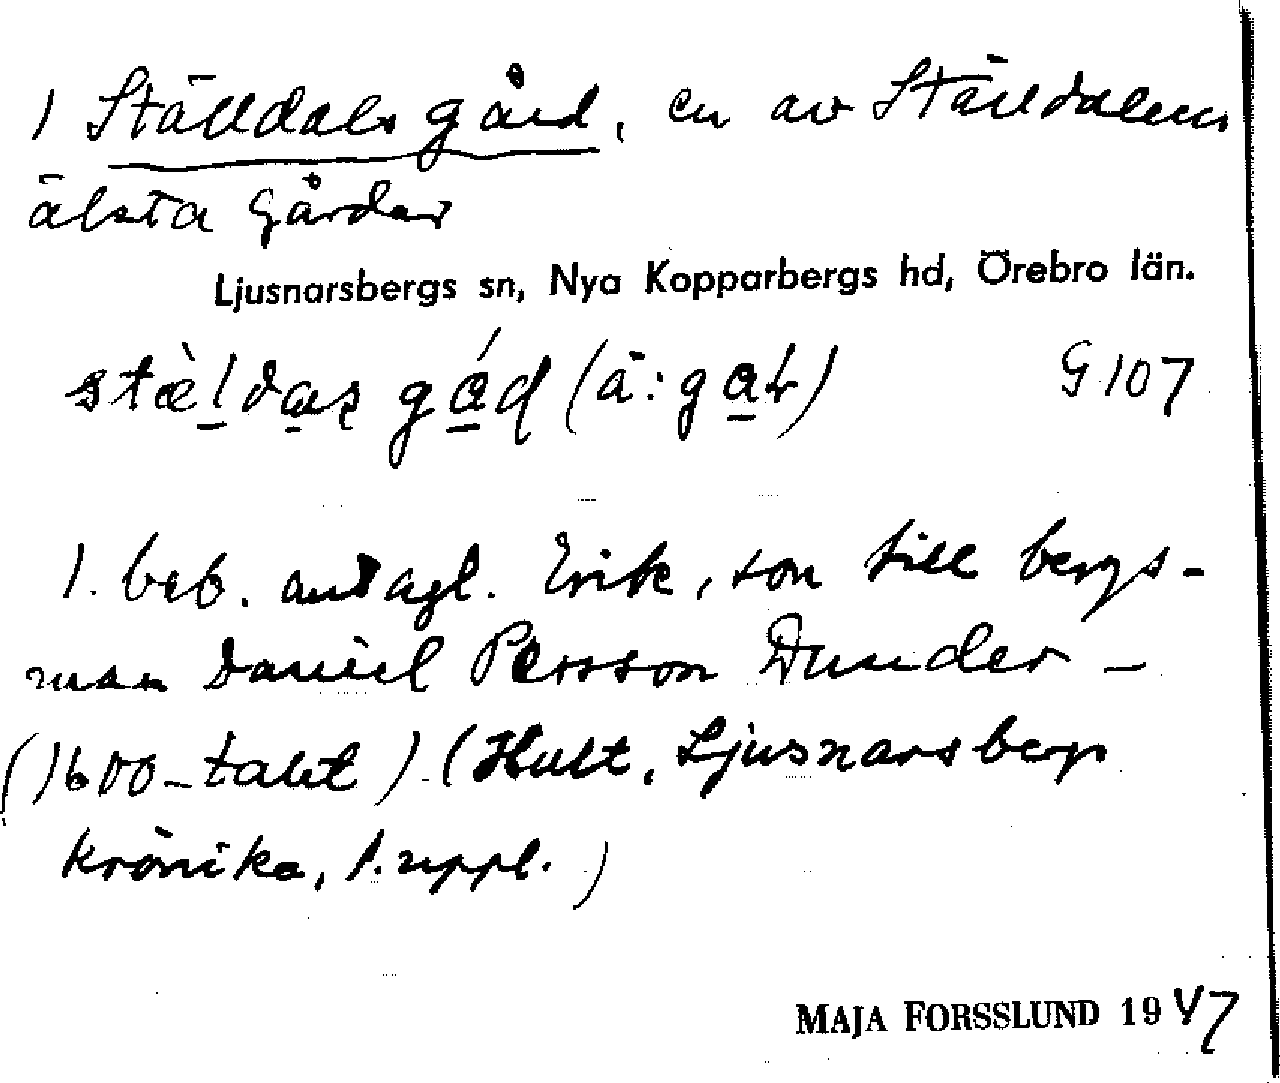 1 Ställdals gård, en av Ställdalens
älsta gårdar
Ljusnarsbergs sn, Nya Kopparbergs hd, Örebro län.
(ä: G 107
1. beb. antagl. Erik, son till bergs-
man Daniel Persson Dunder –
(1600-talet). (Hult, Ljusnarsbergs
krönika, 1. uppl.)
MAJA FORSSLUND 19 47